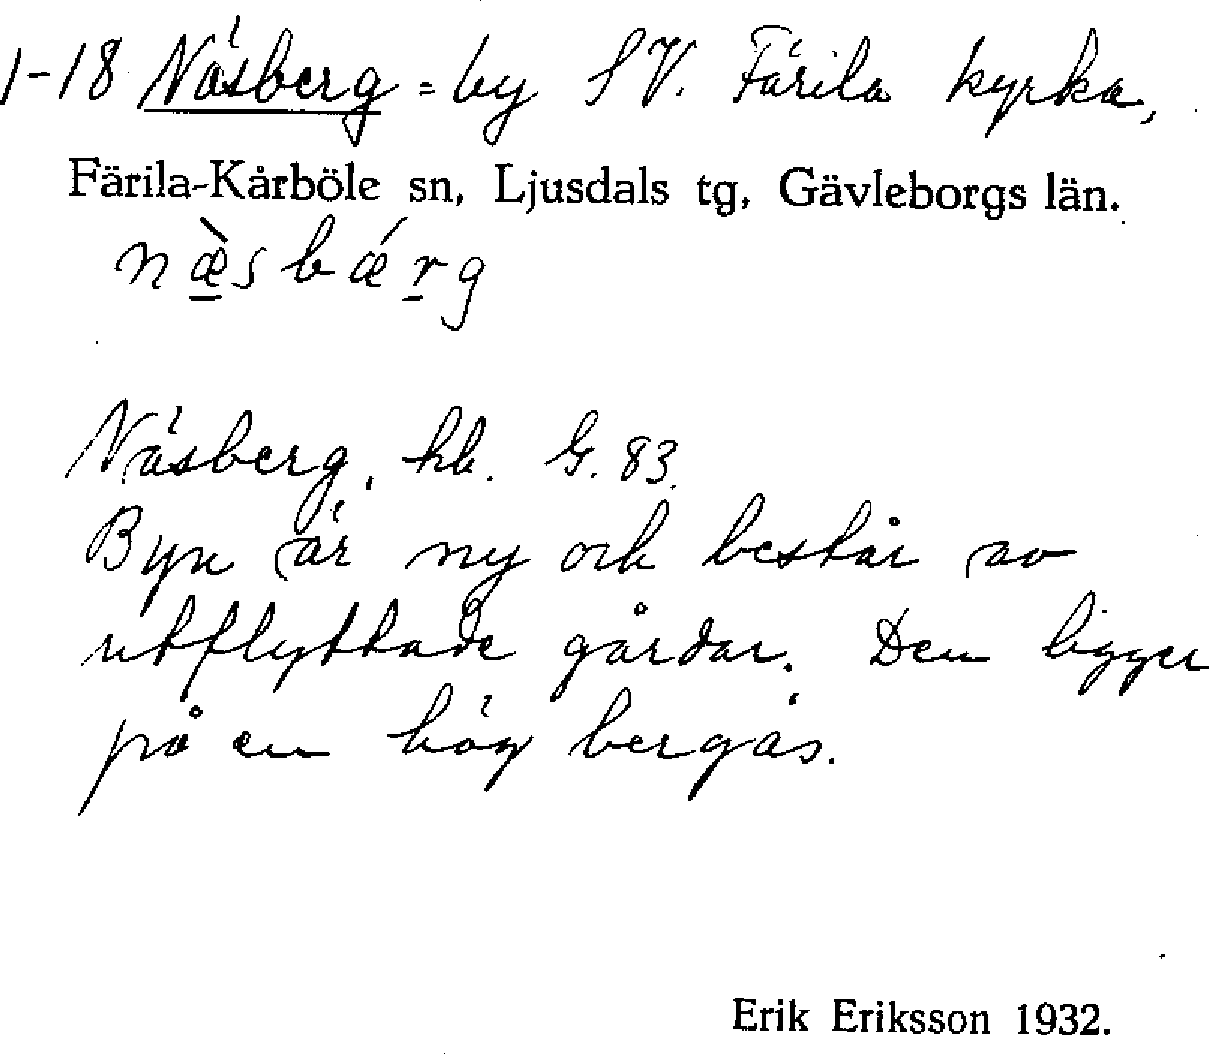 1-18 Näsberg = by SV. Färila kyrka,
Färila-Kårböle sn, Ljusdals tg, Gävleborgs län.
næ̀sbǽrg
Näsberg, hb. G. 83.
Byn är ny och består av
utflyttade gårdar. Den ligger
på en hög bergås.
Erik Eriksson 1932.